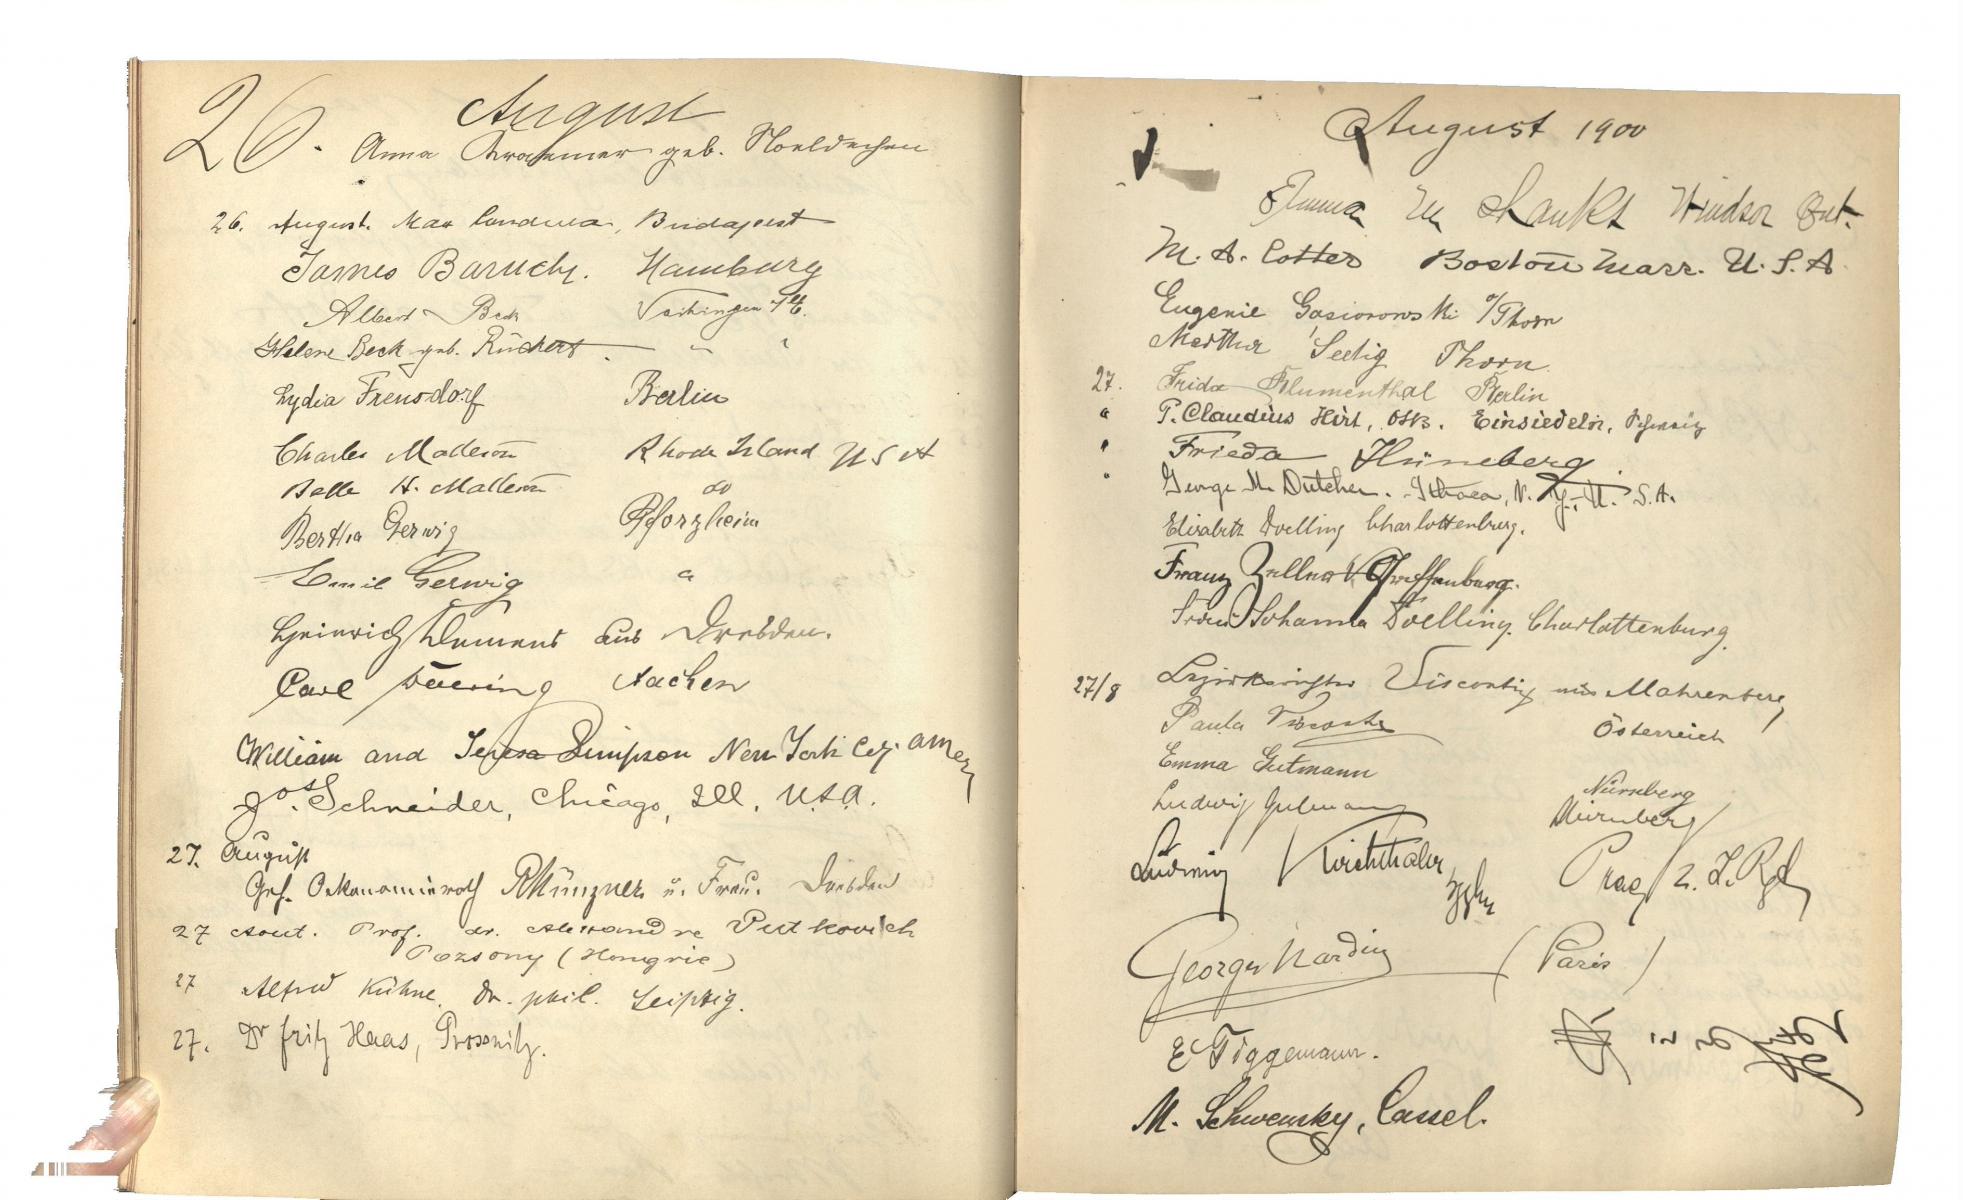 26. August
Anna geb. Noeldechen
26. August. Max Budapest
James Baruch. Hamburg
Albert Beck Vaihingen
Helene Beck geb. Rückert. " "
Lydia Frensdorf Berlin
Charles Matteson Rhode Island U S A
Belle H. Matteson do
Bertha Gerwig Pforzheim
Emil Gerwig "
Heinrich Clemens aus Dresden.
Carl Döering Aachen
William and Teresa Simpson New York City. Amer
Jos. Schneider, Chicago, Ill. U.S.A.
27. August
Geh. Oekonomierath Münzner u. Frau. Dresden
27 Aout. Prof. dr. Alexandre Putkovich
Pozsony (Hongrie)
27 Alfred Kühne. Dr. phil. Leipzig.
27. Dr Fritz Haas, Prossnitz.
August 1900
Emma M Shanks Windsor Ont.
M. A. Cotter Boston Mass. U.S.A
Eugenie Gasiorowski Thorn
Martha Seelig Thorn.
27. Frida Blumenthal Berlin
" P. Claudius Hirt, OSB. Einsiedeln, Schweiz
" Frieda Hüneberg
" George M. Dutcher. Ithaca, N. Y., U. S. A.
Elisabeth Doelling Charlottenburg.
Franz Zeller Greiffenburg.
Frau Johanna Doelling. Charlottenburg.
27/8 Bezirksrichter Visconti aus Mahrenberg
Paula Visconti Österreich
Emma Gutmann Nürnberg
Ludwig Gutmann Nürnberg
Ludwig Prag
Georges Nardin (Paris)
E Tiggemann.
M. Schwensky, Cassel.